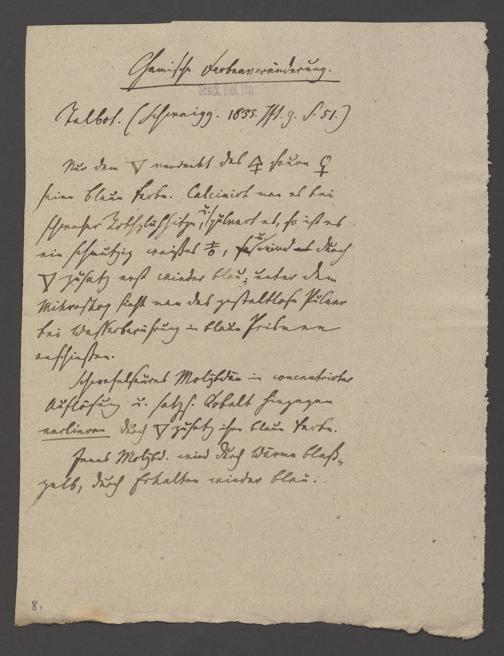 Chemische Farbenveränderung.
Talbot. (Schweigg. 1833. Hft. 9. S. 51.)
Nur dem 🜄 verdankt das 🜍 saure ♀
seine blaue Farbe. Calcinirt man es bei
schwacher Rothglühhitze, u. pulvert es, so ist es
ein schmutzig weißes, wird durch
🜄 zusatz erst wieder blau; unter dem
Mikroskop sieht man das gestaltlose Pulver
bei Wasserberührung in blaue Prismen
anschießen.
Schwefelsaures Molybdän in concentrirter
Auflösung u. salzs. Kobalt hingegen
verlieren durch 🜄 zusatz ihre blaue Farbe.
Jenes Molybd. wird durch Wärme blaß-
gelb, durch Erkalten wieder blau.
8.